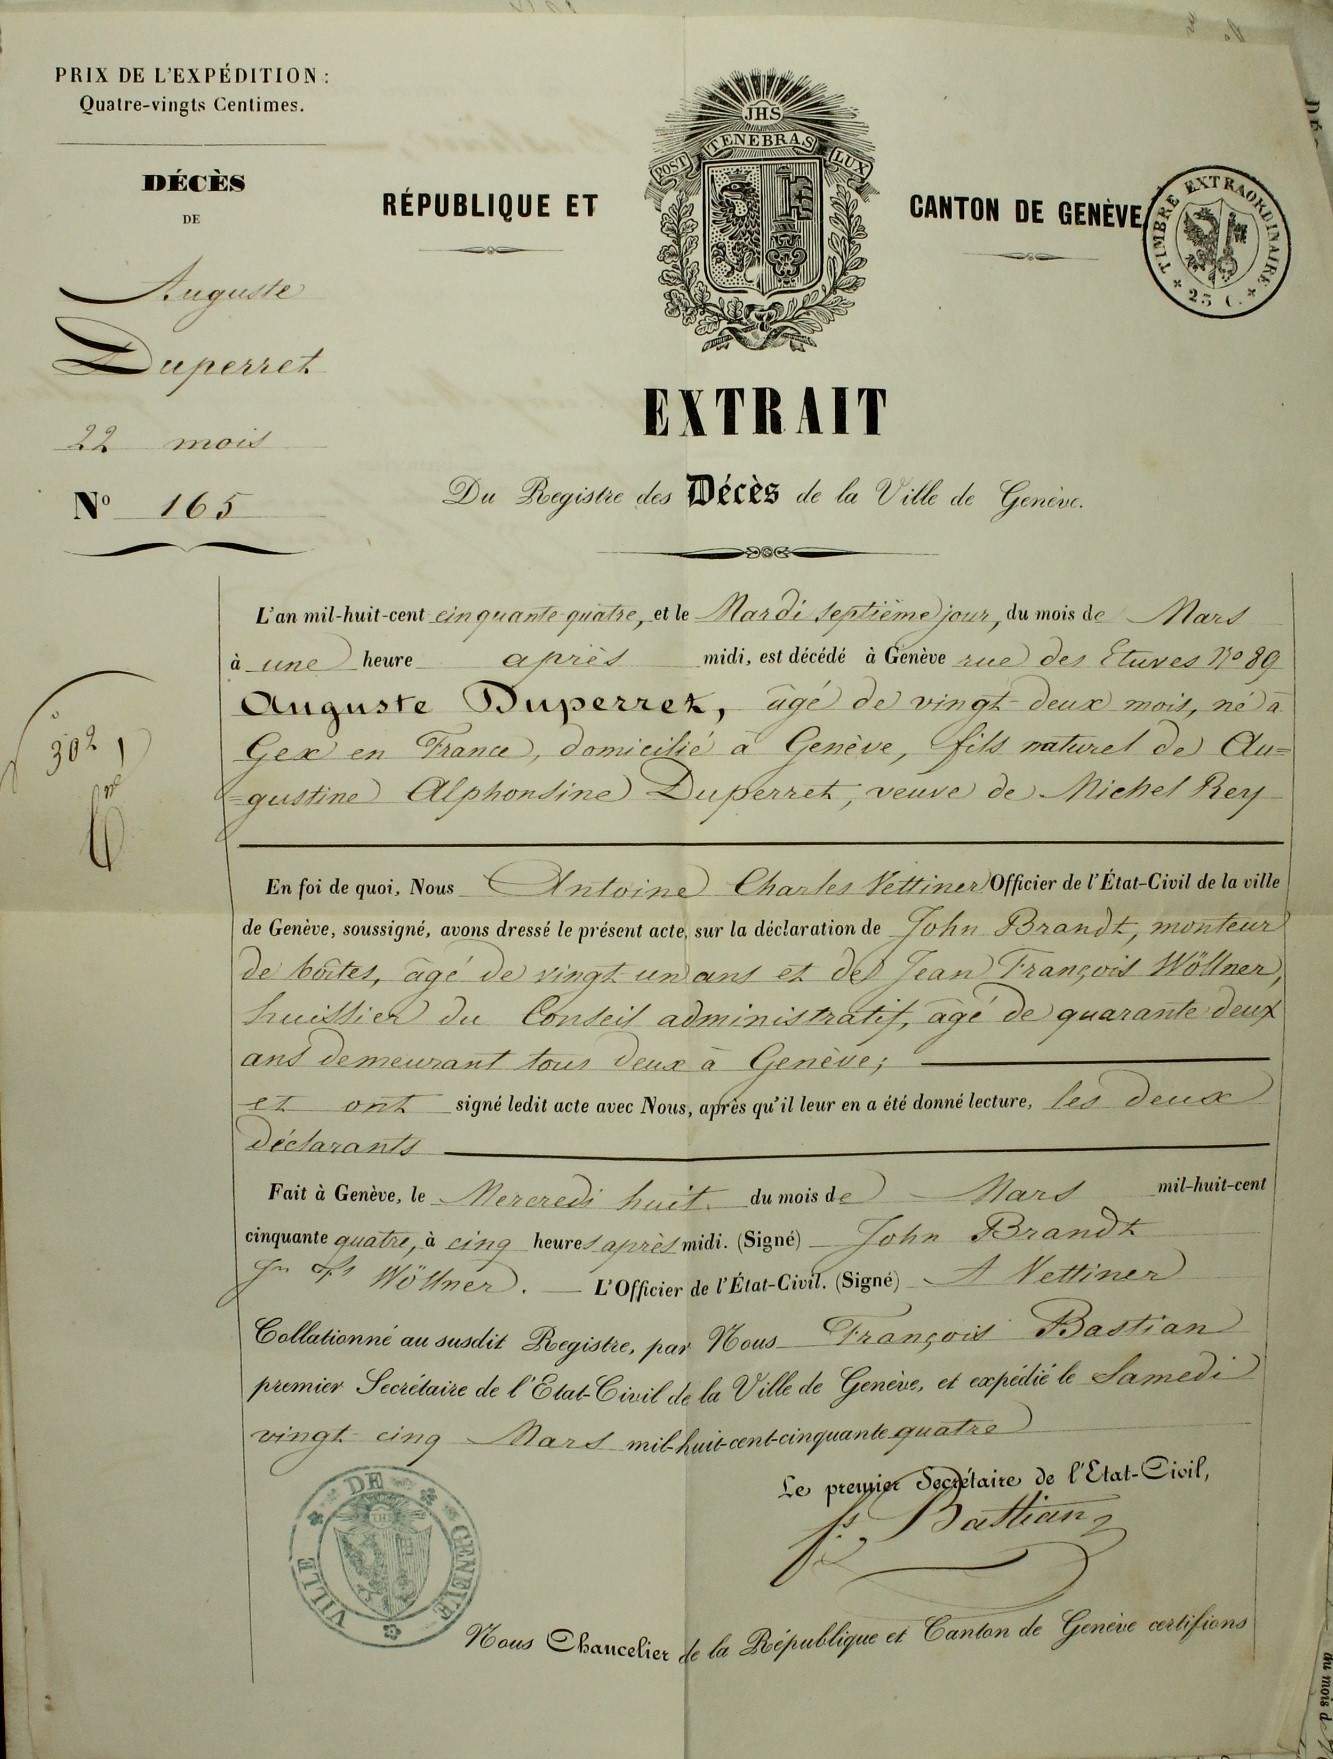 PRIX DE L'EXPÉDITION :
Quatre-vingts Centimes.
DÉCÈS
DE
Auguste
Duperret
22 mois
Nº 165
JHS
POST TENEBRAS LUX
RÉPUBLIQUE ET CANTON DE GENÈVE
TIMBRE EXTRAORDINAIRE
25 C.
EXTRAIT
Du Registre des Décès de la Ville de Genève.
L'an mil-huit-cent cinquante quatre, et le Mardi septième jour, du mois de Mars
à une heure après midi, est décédé à Genève rue des Etuves Nº 89
Auguste Duperret, âgé de vingt-deux mois, né à
Gex en France, domicilié à Genève, fils naturel de Au=
=gustine Alphonsine Duperret, veuve de Michel Rey
302
En foi de quoi, Nous Antoine Charles Vettiner Officier de l'État-Civil de la ville
de Genève, soussigné, avons dressé le présent acte, sur la déclaration de John Brandt, monteur
de boîtes, âgé de vingt-un ans et de Jean François Wöllner,
huissier du Conseil administratif, âgé de quarante-deux
ans demeurant tous deux à Genève;
et ont signé ledit acte avec Nous, après qu'il leur en a été donné lecture, les deux
déclarants
Fait à Genève, le Mercredi huit du mois de Mars mil-huit-cent
cinquante quatre, à cinq heures après midi. (Signé) John Brandt
Jn Fs Wöllner. — L'Officier de l'État-Civil. (Signé) A Vettiner
Collationné au susdit Registre, par Nous François Bastian
premier Secrétaire de l'Etat-Civil de la Ville de Genève, et expédié le Samedi
vingt cinq Mars mil-huit-cent-cinquante quatre
Le premier Secrétaire de l'Etat-Civil,
fs Bastian
VILLE DE GENEVE
Nous Chancelier de la République et Canton de Genève certifions
du mois d